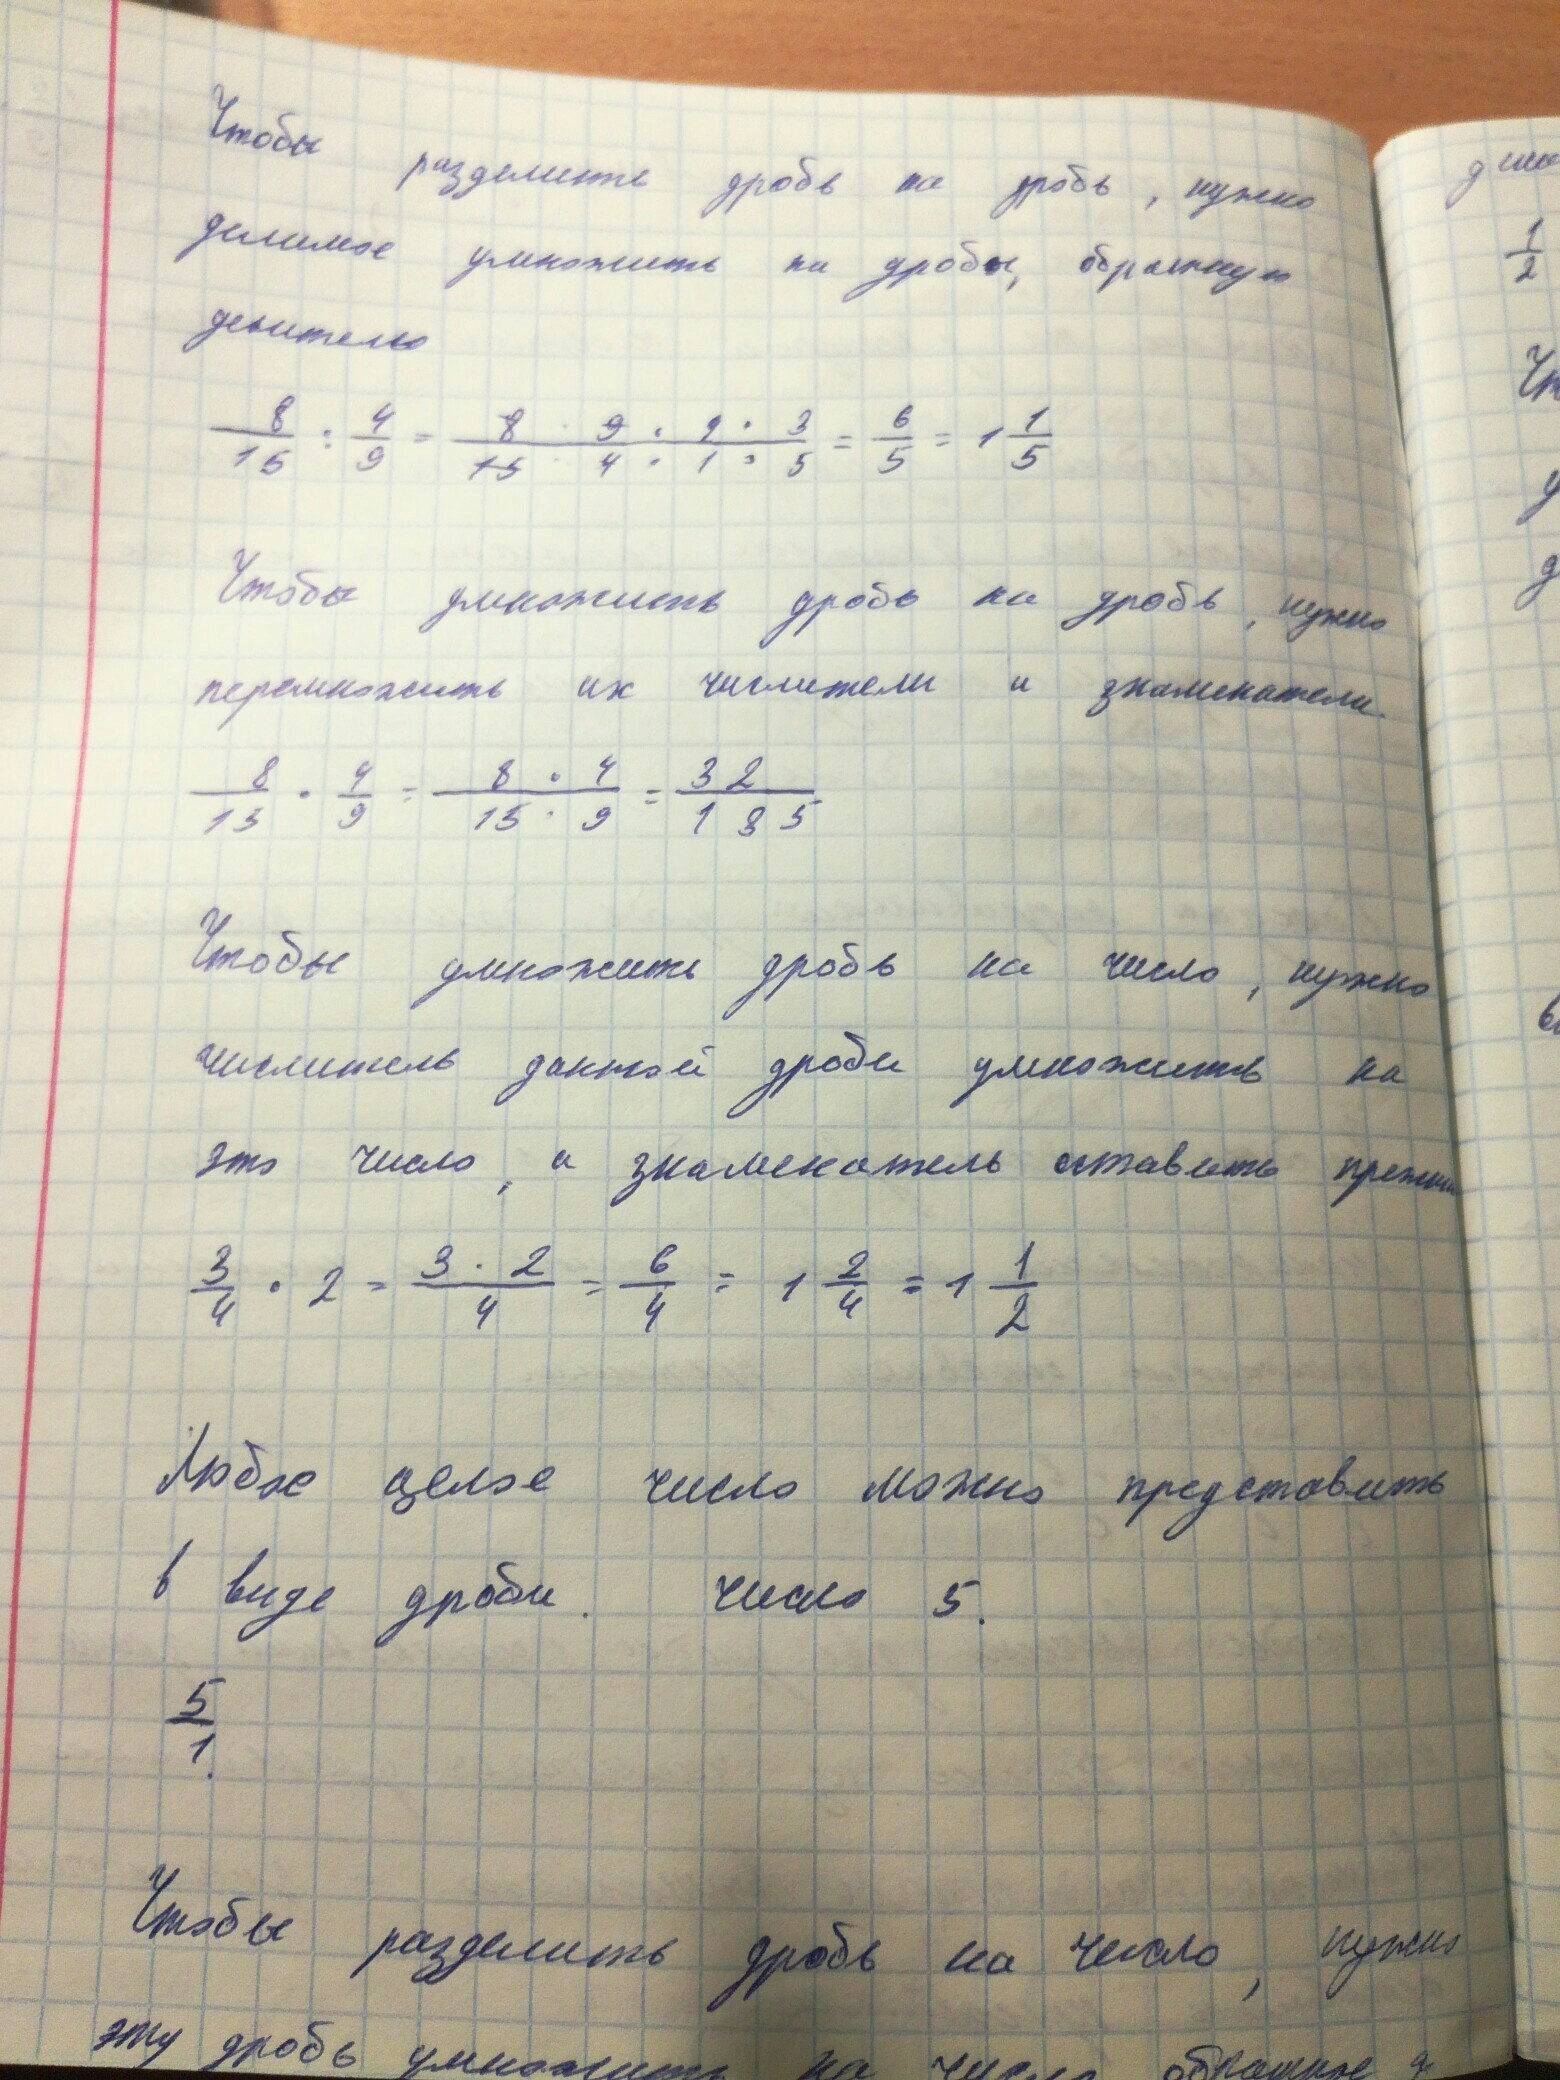 Чтобы разделить дробь на дробь, нужно
делимое умножить на дробы, обратную
делителю
8/15 : 4/9 = 8 · 9 · 2 · 3 / 15 · 4 · 1 · 5 = 6/5 = 1 1/5
Чтобы умножить дробь на дробь, нужно
перемножить их числители и знаменатели.
8/15 · 4/9 = 8 · 4 / 15 · 9 = 32/135
Чтобы умножить дробь на число, нужно
числитель данной дроби умножить на
это число, а знаменатель оставить
3/4 · 2 = 3 · 2 / 4 = 6/4 = 1 2/4 = 1 1/2
Любое целое число можно представить
в виде дроби. число 5.
5/1.
Чтобы разделить дробь на число, нужно
эту дробь умножить на число обратное
1/2